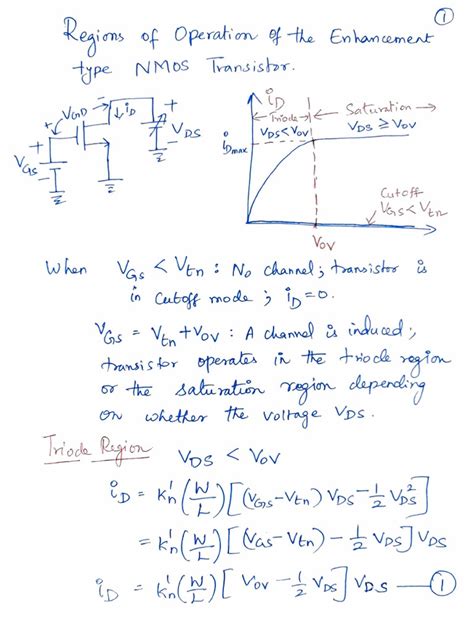 ①
Regions of Operation of the Enhancement
type NMOS Transistor.
VGD
iD
VDS
VGS
iD
Triode
Saturation
VDS<VOV
VDS ≥ VOV
iDmax
Cutoff
VGS<Vtn
VOV
When VGS < Vtn : No channel; transistor is
in cutoff mode ; iD=0.
VGS = Vtn+VOV : A channel is induced;
transistor operates in the triode region
or the saturation region depending
on whether the voltage VDS.
Triode Region
VDS < VOV
iD = k'n (W/L) [(VGS-Vtn) VDS - 1/2 VDS²]
= k'n (W/L) [(VGS-Vtn) - 1/2 VDS] VDS
iD = k'n (W/L) [VOV - 1/2 VDS] VDS — ①